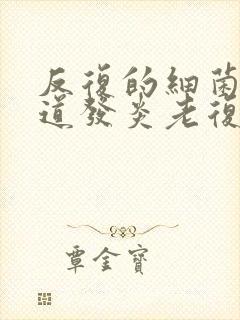 反復的細菌
道發炎老復
覃金寶